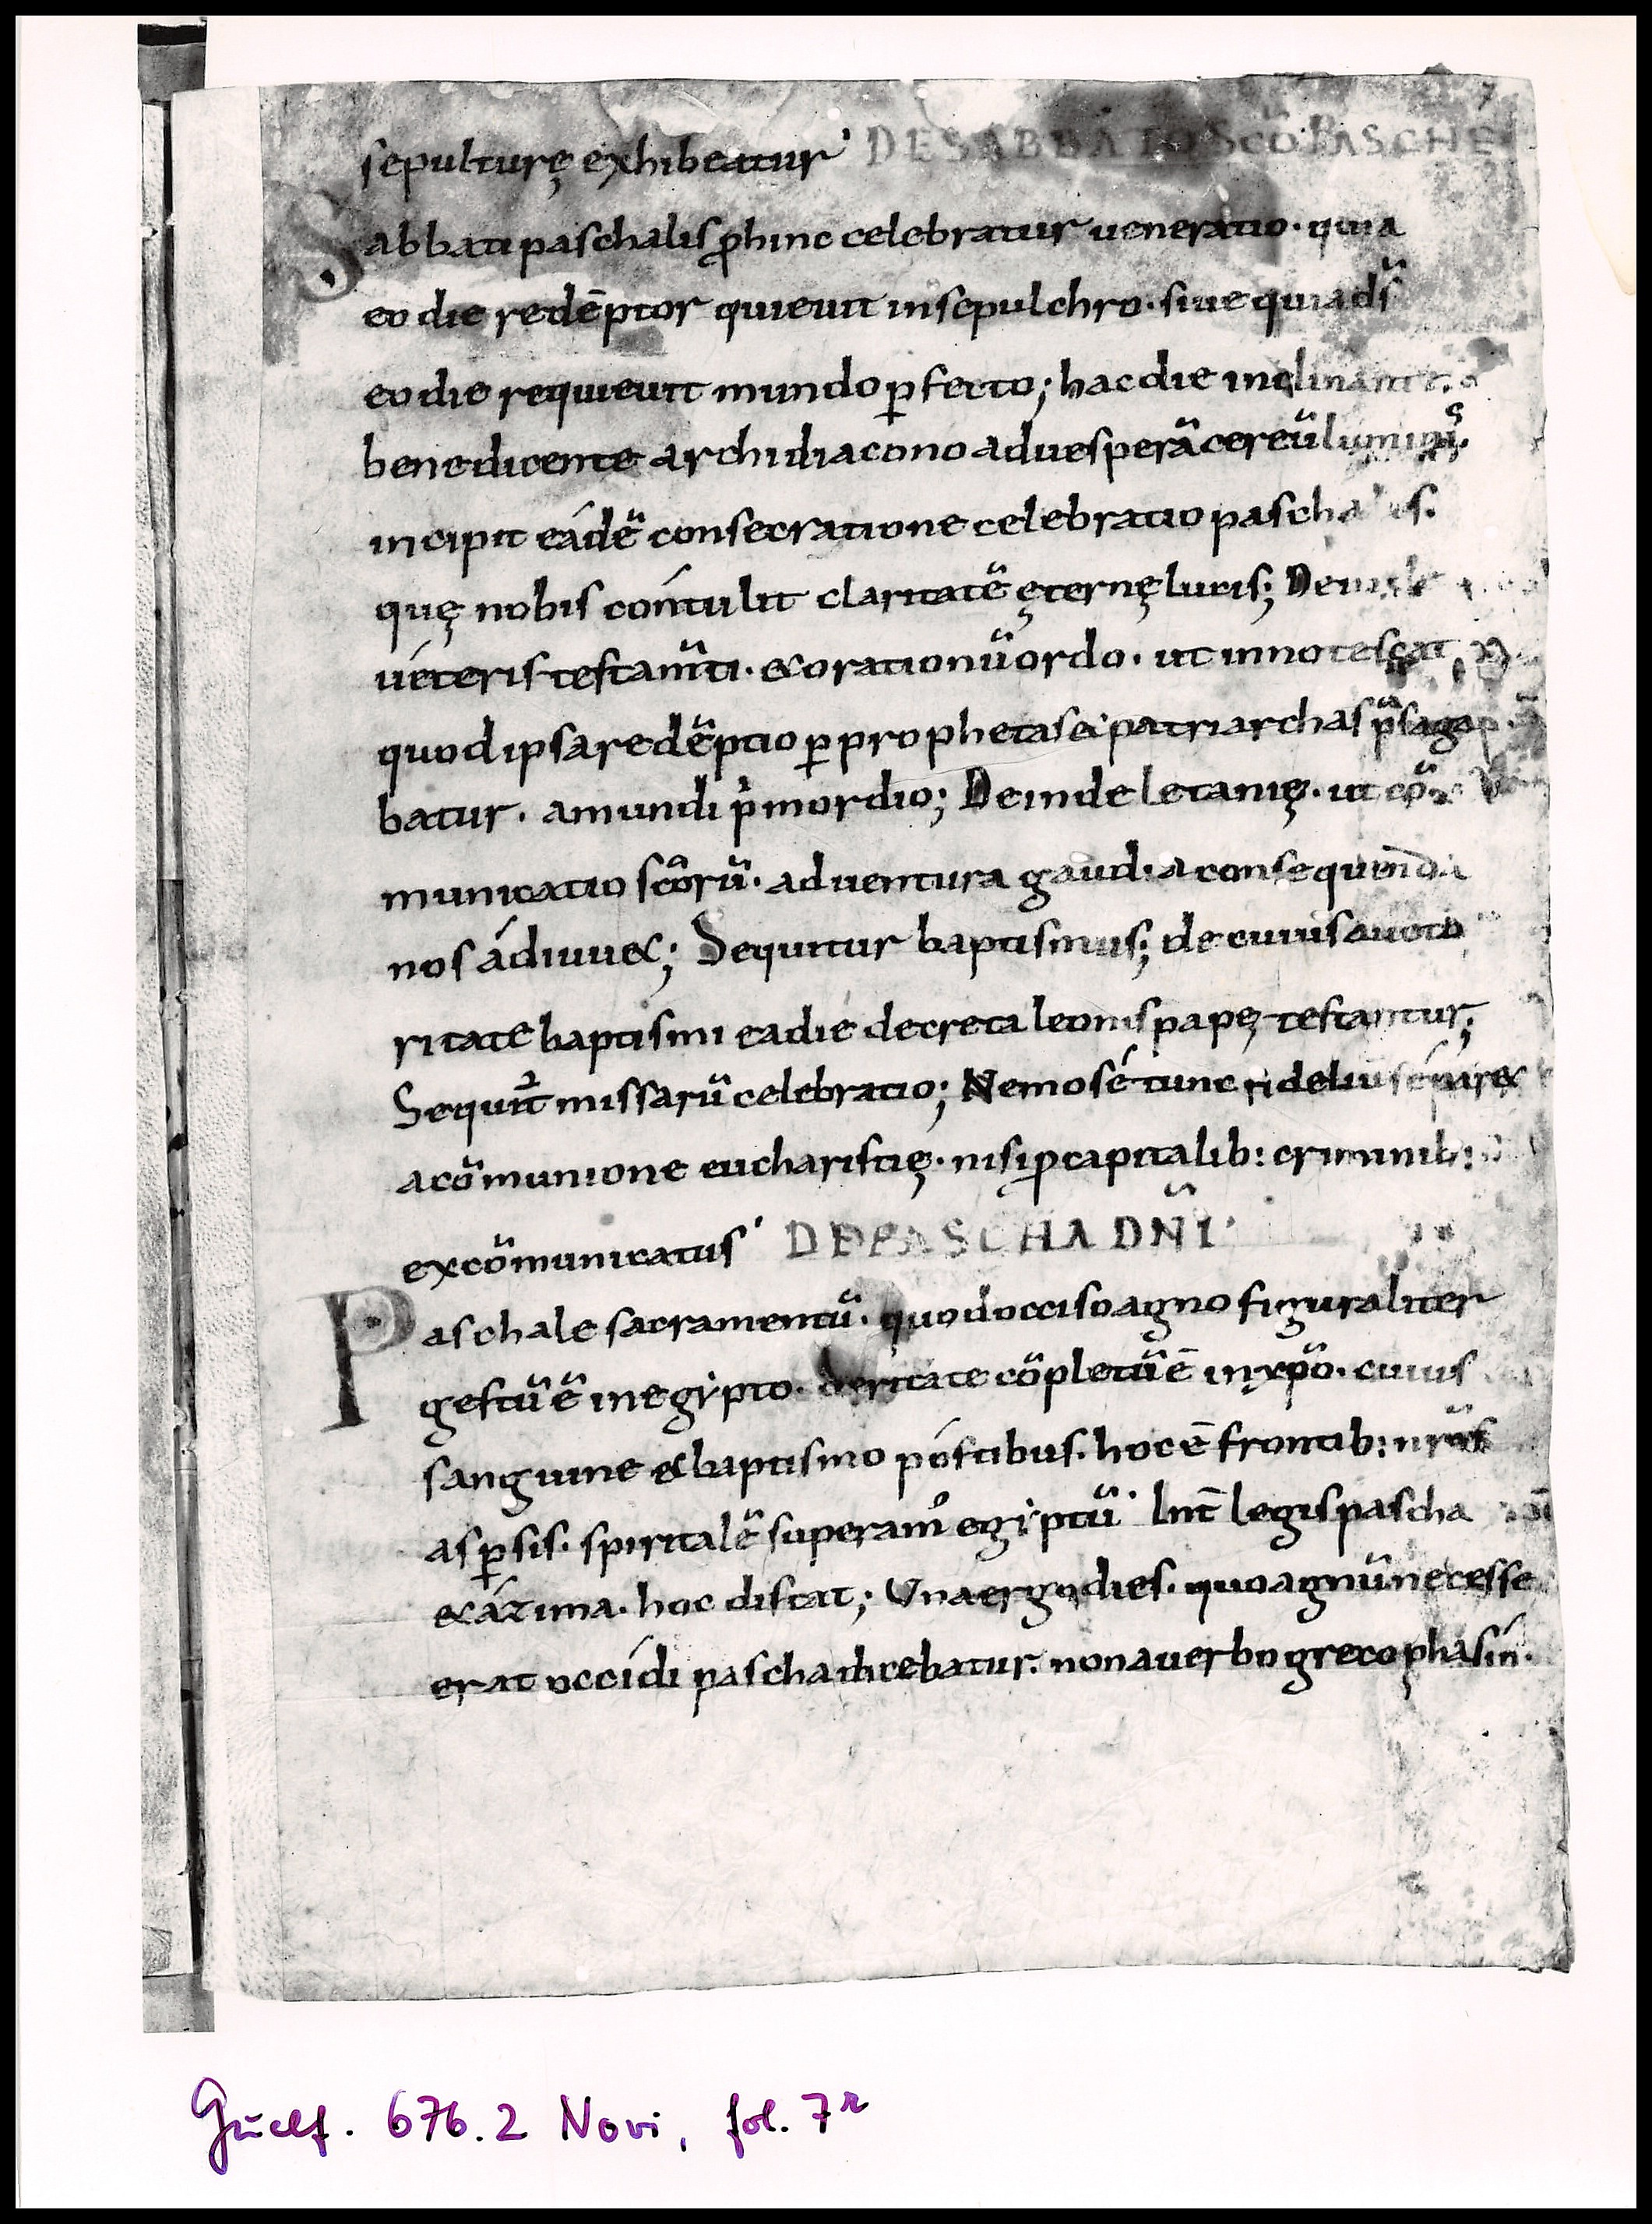 7
sepulturę exhibeatur DE SABBATO SCO PASCHE
Sabbati paschalis ꝓhinc celebratur ueneratio· quia
eo die redēptor quieuit insepulchro· siue quia ds̄
eo die requieuit mundo ꝑfecto; hac die inclinante·
benedicente archidiacono aduesperā cereū luminis·
incipit eádē consecratione celebratio paschalis·
quę nobis cóntulit claritatē ęternę lucis; Deinde
uéteris testam̄ti· & orationū ordo· ut innotescat
quod ipsa redēptio ꝑ prophetas et patriarchas p̄saga
batur· amundi pͥmordio; Deinde letanię· ut cō
municatio scōrū· aduentura gaudia consequenda
nos ádiuu&; Sequitur baptismus; de cuius aucto
ritate baptismi ea die decreta leonis papę testantur;
Sequit̄ missarū celebratio; Nemo sé tunc fideliū sépar&
a cōmunione eucharistię· nisi ꝓ capitalib: criminib:
excōmunicatus DE PASCHA DN̄I
Paschale sacramentū· quod occiso agno figuraliter
gestū ē in egipto· ueritate cōpletū ē in xp̄o· cuius
sanguine & baptismo póstibus· hoc ē frontib: nr̄is
asꝑsis· spiritalē superam᷒ egiptū Int̄ legis pascha
& ázima· hoc distat; Una ergo dies· quo agnū necesse
erat occídi pascha dicebatur· non a uerbo greco phasín·
Guelf. 676.2 Novi, fol. 7r